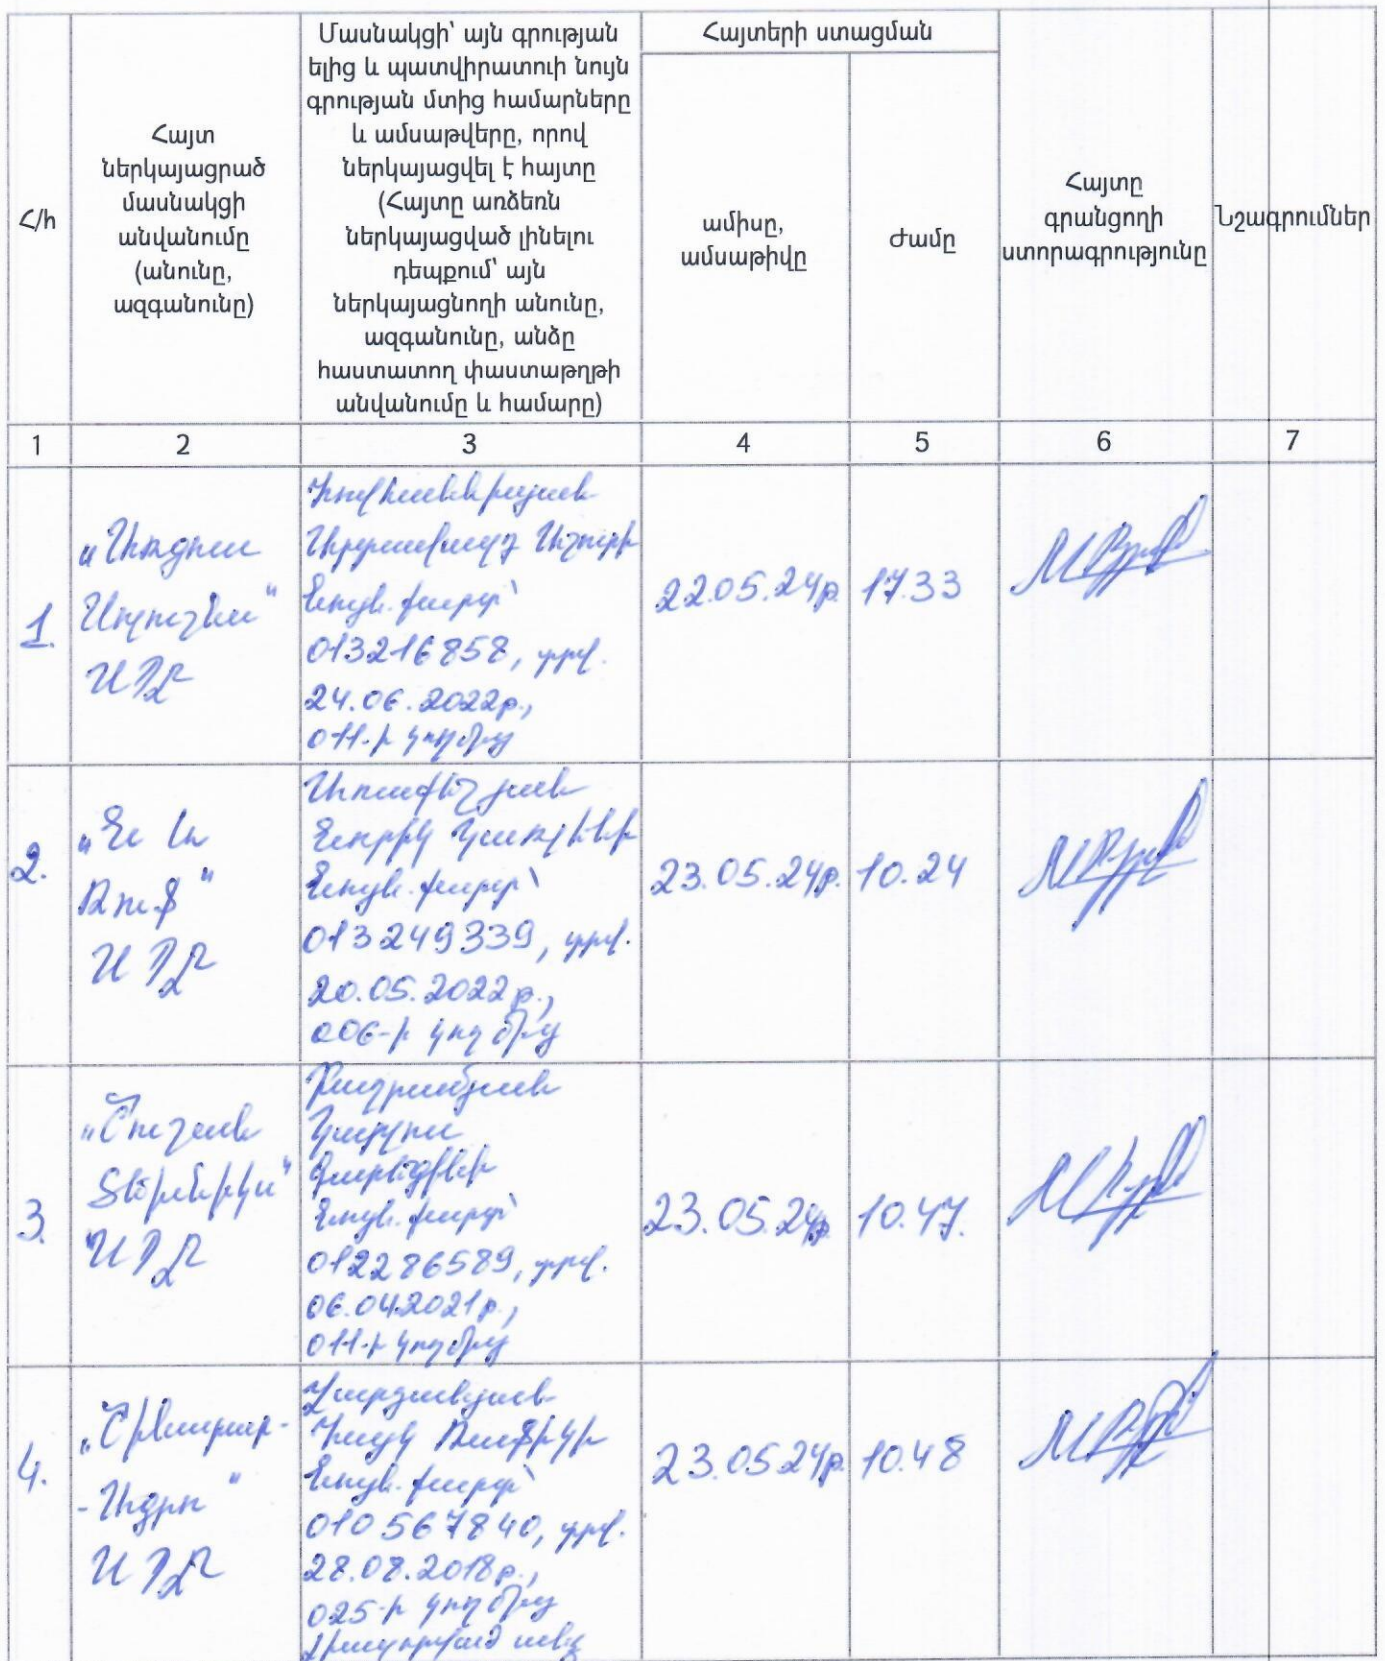 Հ/հ
Հայտ
ներկայացրած
մասնակցի
անվանումը
(անունը,
ազգանունը)
Մասնակցի՝ այն գրության
ելից և պատվիրատուի նույն
գրության մտից համարները
և ամսաթվերը, որով
ներկայացվել է հայտը
(Հայտը առձեռն
ներկայացված լինելու
դեպքում՝ այն
ներկայացնողի անունը,
ազգանունը, անձը
հաստատող փաստաթղթի
անվանումը և համարը)
Հայտերի ստացման
ամիսը,
ամսաթիվը
ժամը
Հայտը
գրանցողի
ստորագրությունը
Նշագրումներ
1
2
3
4
5
6
7
1.
ՍՊԸ
Հովհաննիսյան
Աշոտի
նույն. քարտ՝
013216858, տրվ.
24.06.2022թ.,
011-ի կողմից
22.05.24թ.
17.33
2.
ՍՊԸ
Առաքելյան
Կառլենի
նույն. քարտ՝
013249339, տրվ.
20.05.2022թ.,
006-ի կողմից
23.05.24թ.
10.24
3.
„Շուշան
Տեխնիկս“
ՍՊԸ
Բաղրամյան
Կարլոս
Գարեգինի
նույն. քարտ՝
012286589, տրվ.
06.04.2021թ.,
011-ի կողմից
23.05.24թ.
10.47.
4.
„Շինարար-
ՍՊԸ
Վարդանյան
Հայկ Ռաֆիկի
նույն. քարտ՝
010567840, տրվ.
28.08.2018թ.,
025-ի կողմից
Լիազորված անձ
23.05.24թ.
10.48